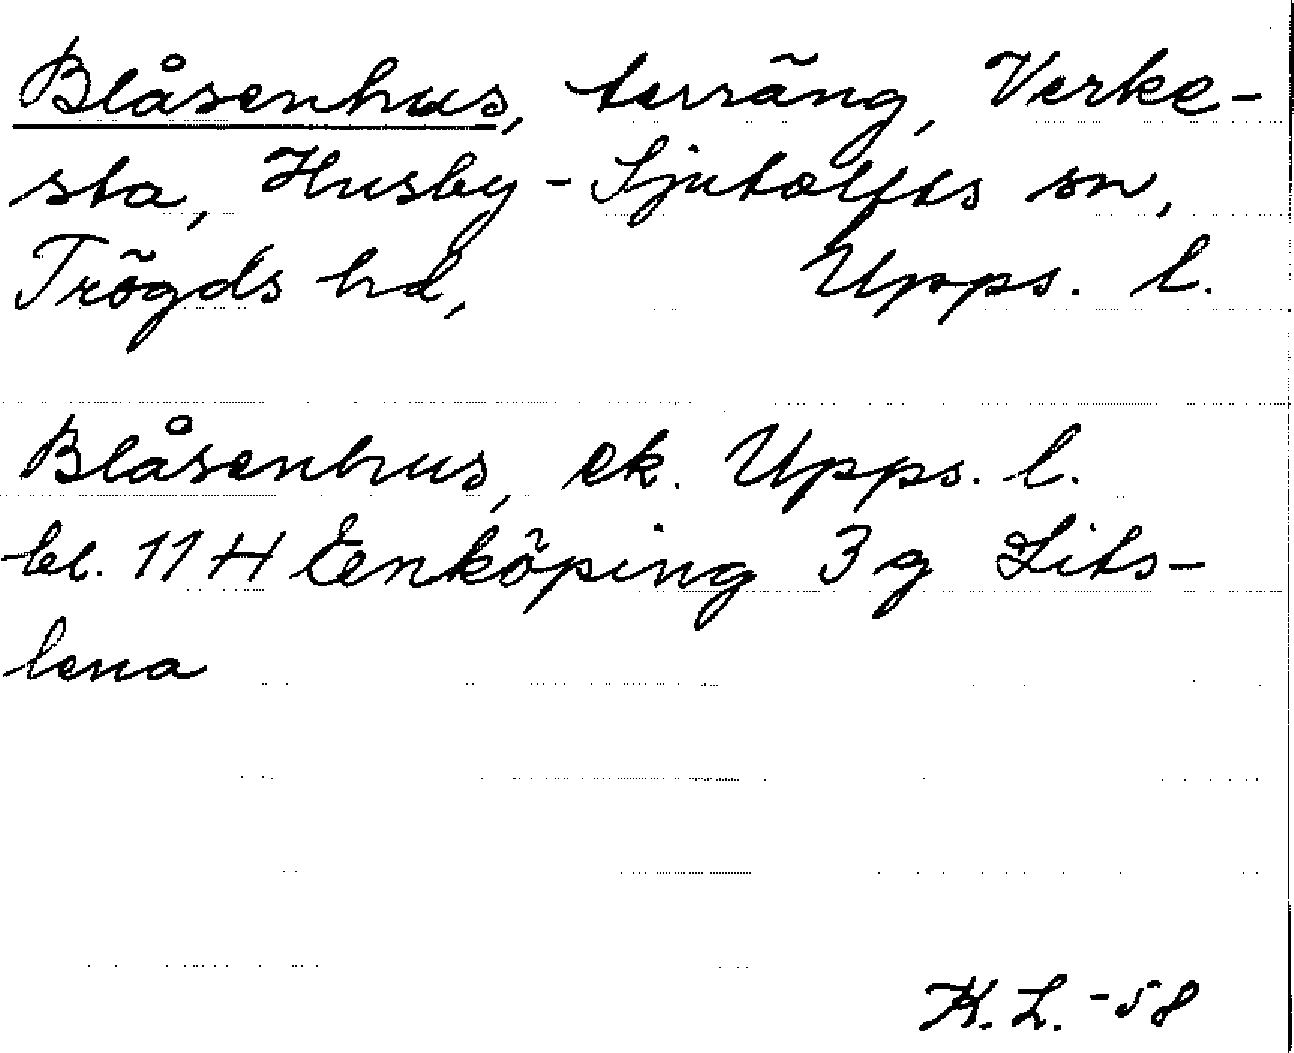 Blåsenhus, terräng, Verke-
sta, Husby-Sjutolfts sn,
Trögds hd, Upps. l.
Blåsenhus, ek. Upps. l.
bl. 11 H Enköping 3 g Lits-
lena
K. L. -58